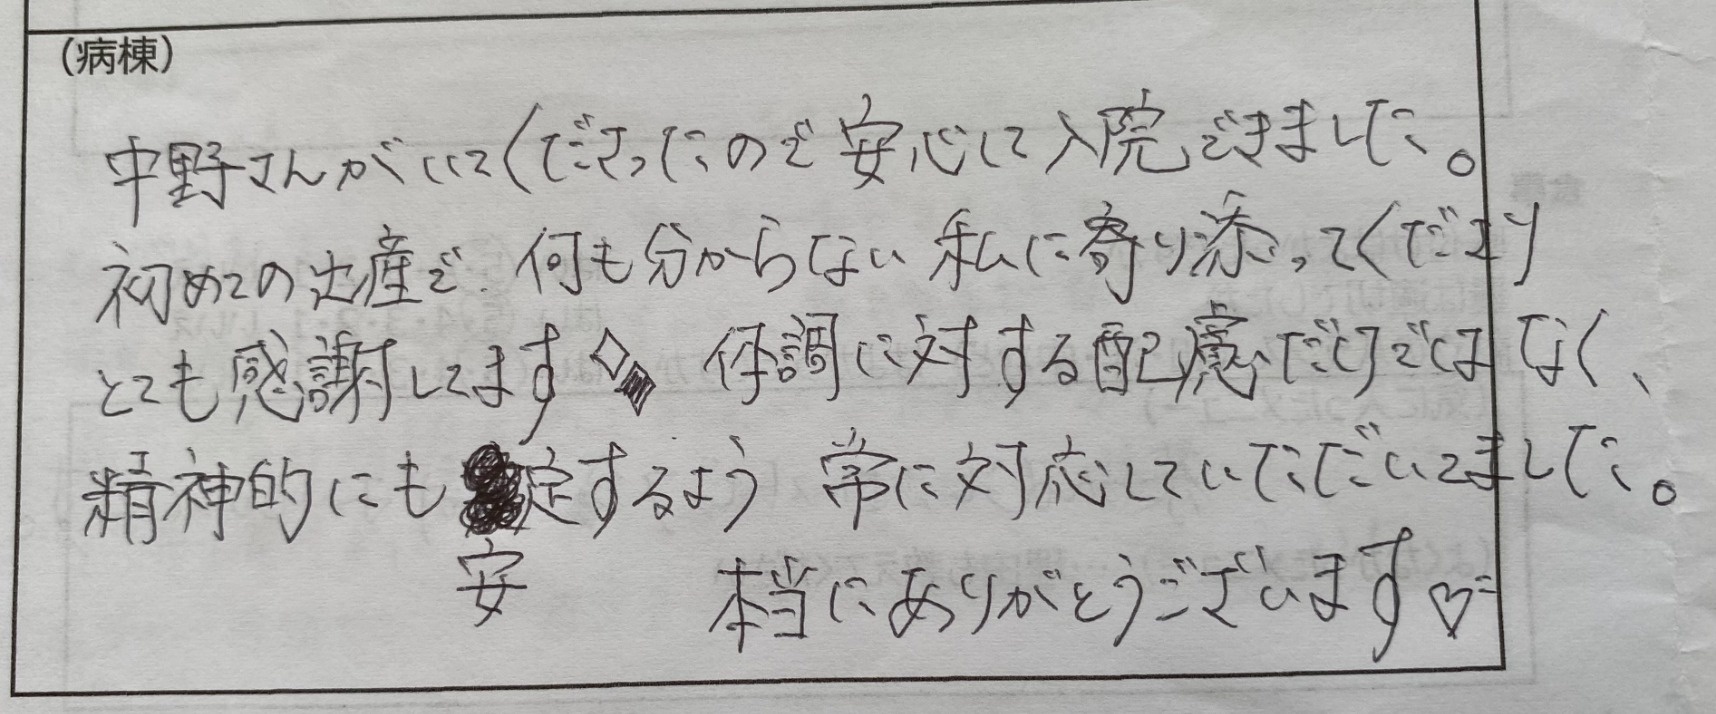 (病棟)
中野さんがいてくださったので安心して入院できました。
初めての出産で何も分からない私に寄り添ってくださり
とても感謝してます 体調に対する配慮だけではなく、
精神的にも安定するよう常に対応していただいてました。
本当にありがとうございます♡